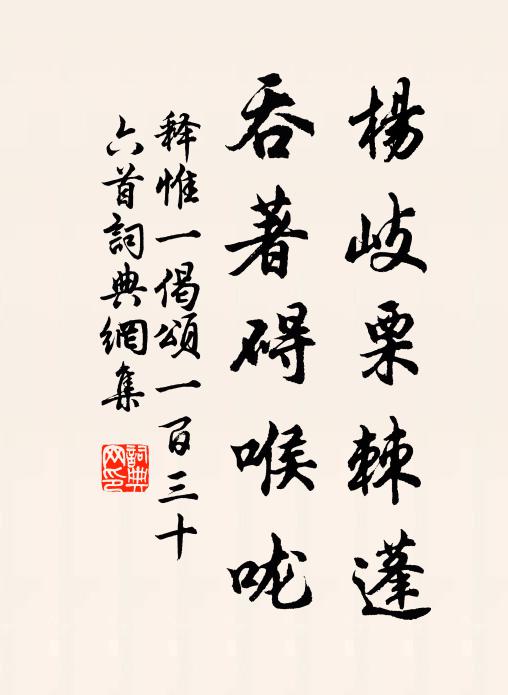 楊岐栗棘蓬
吞著碍喉咙
释惟一偈頌一百三十
六首詞典網集
詞典网印